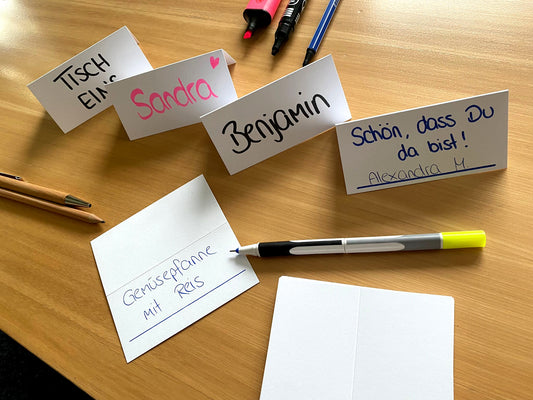 TISCH
EINS
Sandra
Benjamin
Schön, dass Du
da bist!
Alexandra M
Gemüsepfanne
mit Reis